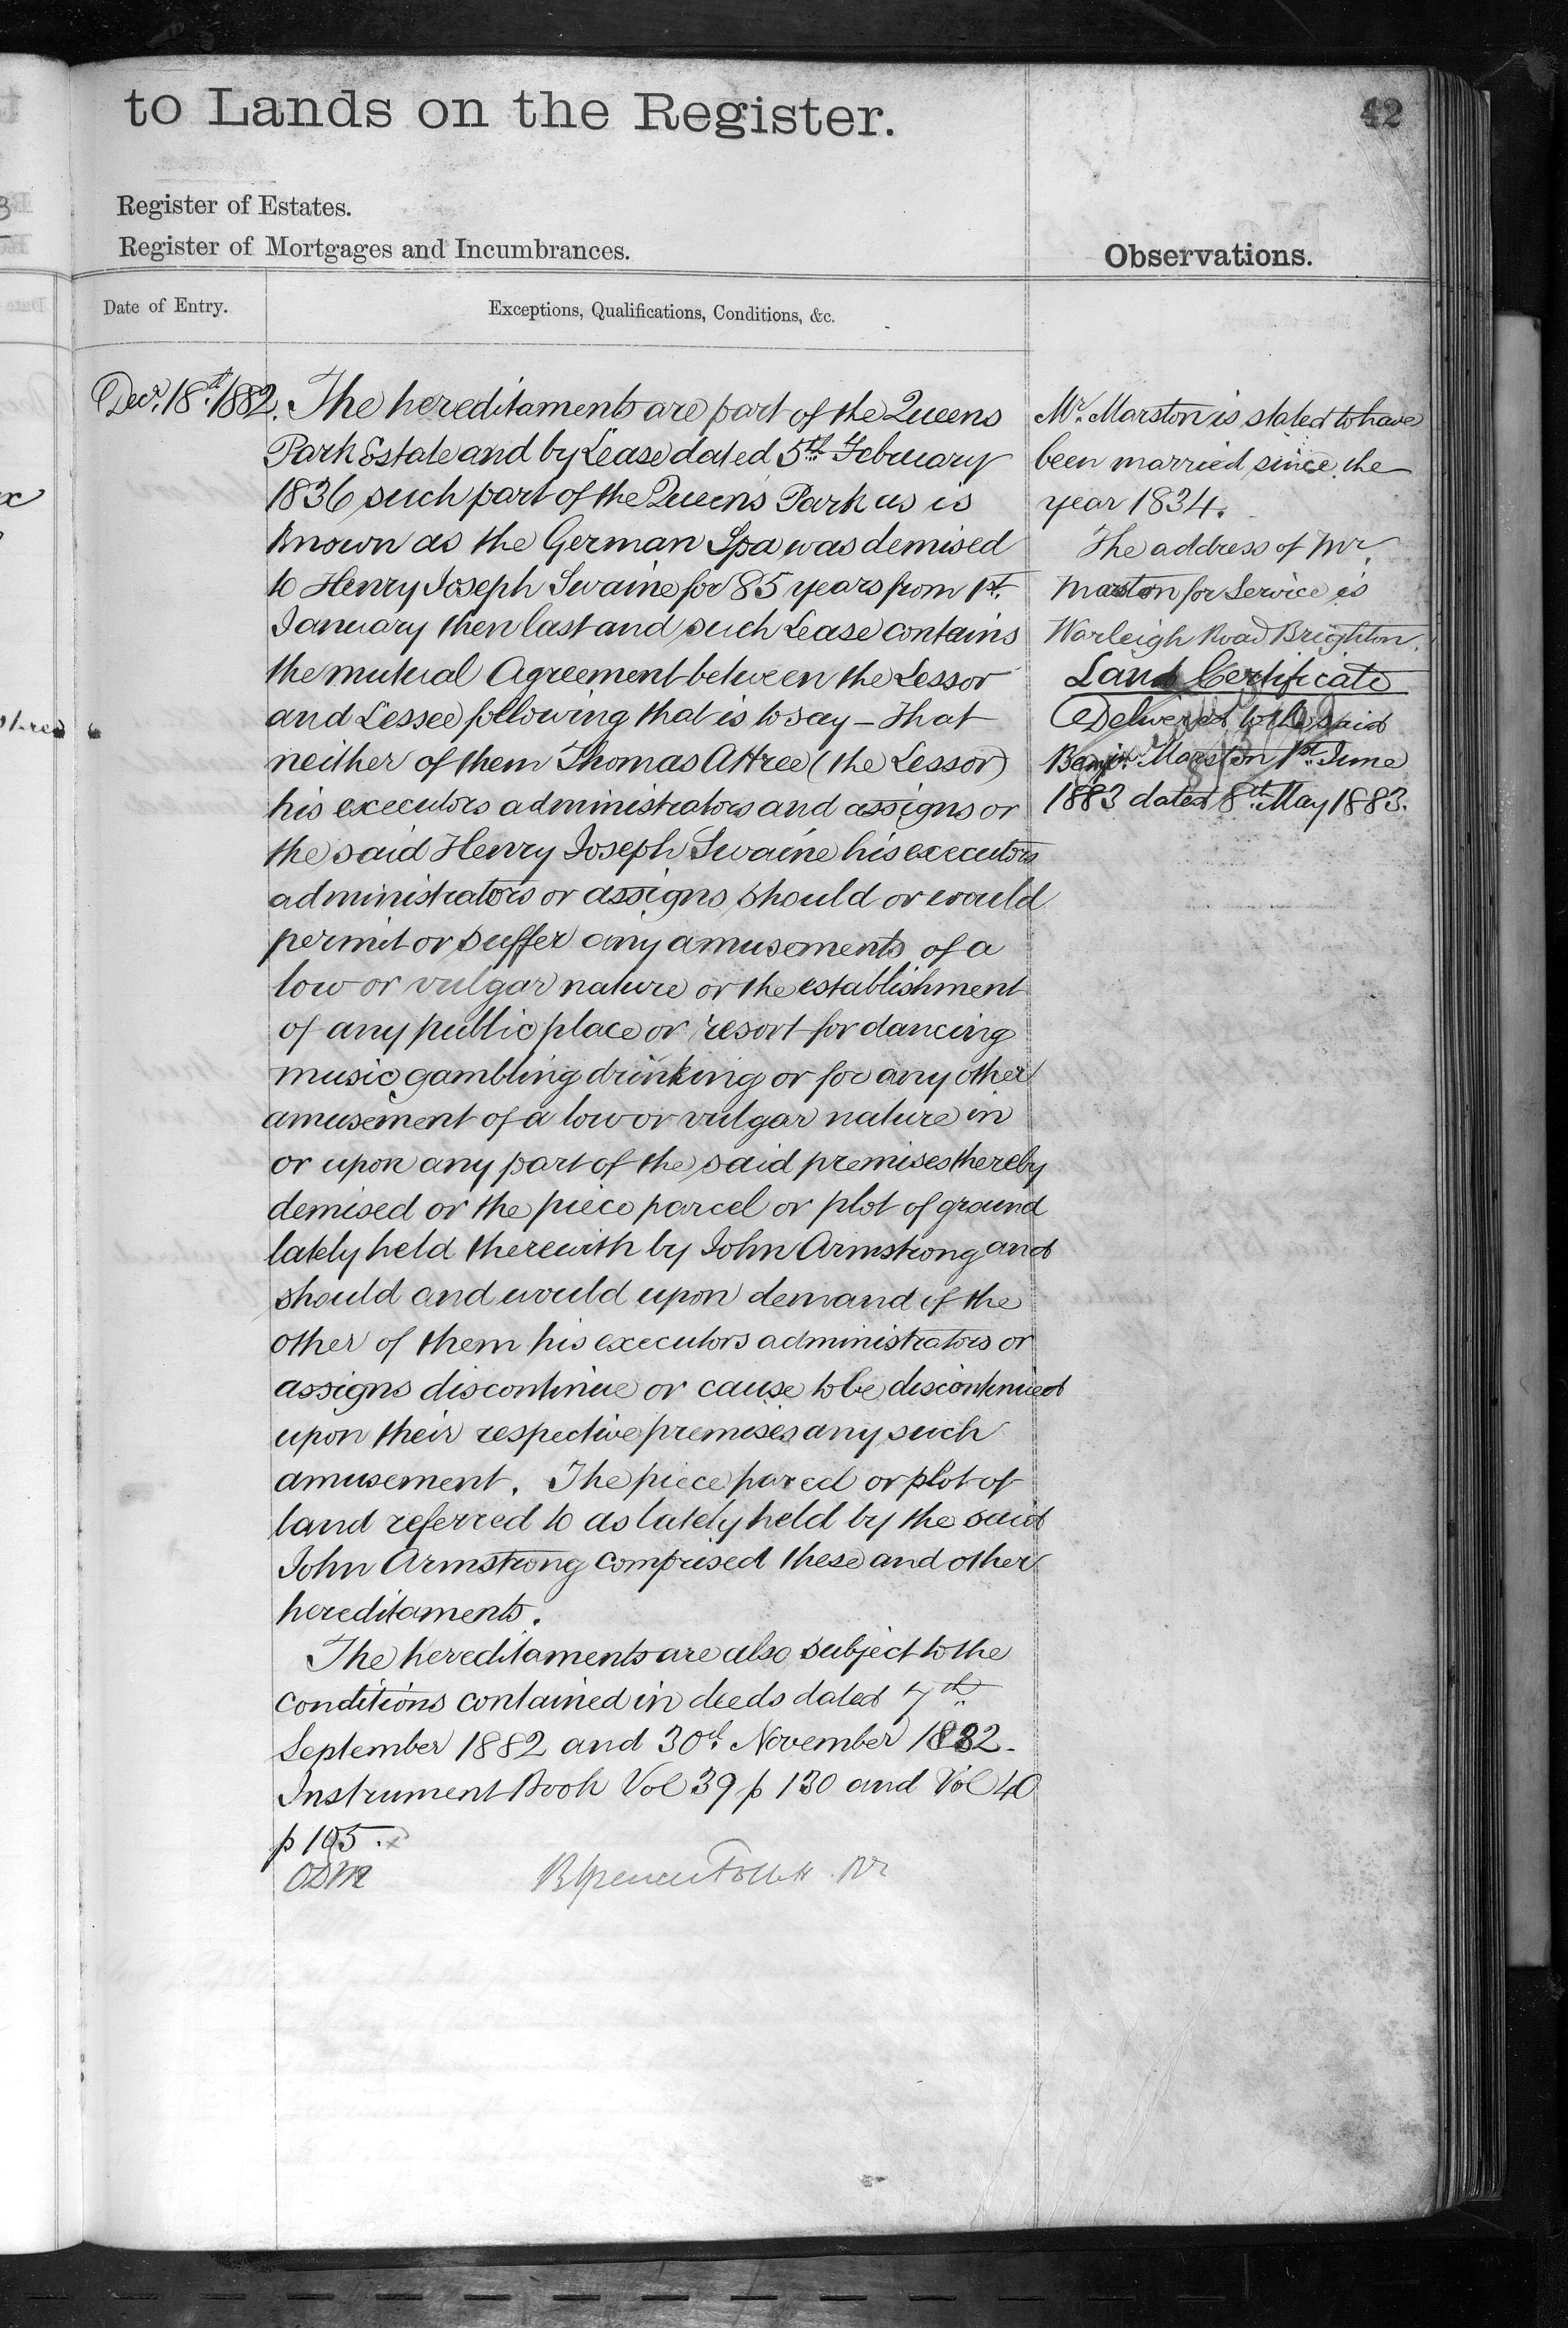 to Lands on the Register.
42
Register of Estates.
Register of Mortgages and Incumbrances.
Observations.
Date of Entry.
Exceptions, Qualifications, Conditions, &c.
Decr. 18th 1882.
The hereditaments are part of the Queens
Park Estate and by Lease dated 5th February
1836 such part of the Queen's Park as is
known as the German Spa was demised
to Henry Joseph Swaine for 85 years from 1st
January then last and such Lease contains
the mutual Agreement between the Lessor
and Lessee following that is to say – That
neither of them Thomas Attree (the Lessor)
his executors administrators and assigns or
the said Henry Joseph Swaine his executors
administrators or assigns should or would
permit or suffer any amusements of a
low or vulgar nature or the establishment
of any public place or resort for dancing
music gambling drinking or for any other
amusement of a low or vulgar nature in
or upon any part of the said premises thereby
demised or the piece parcel or plot of ground
lately held therewith by John Armstrong and
should and would upon demand of the
other of them his executors administrators or
assigns discontinue or cause to be discontinued
upon their respective premises any such
amusement. The piece parcel or plot of
land referred to as lately held by the said
John Armstrong comprised these and other
hereditaments.
The hereditaments are also subject to the
conditions contained in deeds dated 7th
September 1882 and 30th November 1882.
Instrument Book Vol 39 p 130 and Vol 40
p 105.
Mr. Marston is stated to have
been married since the
year 1834.
The address of Mr.
Marston for Service is
Warleigh Road Brighton.
Land Certificate
Delivered to the said
Benjn. Marston 1st June
1883 dated 8th May 1883.